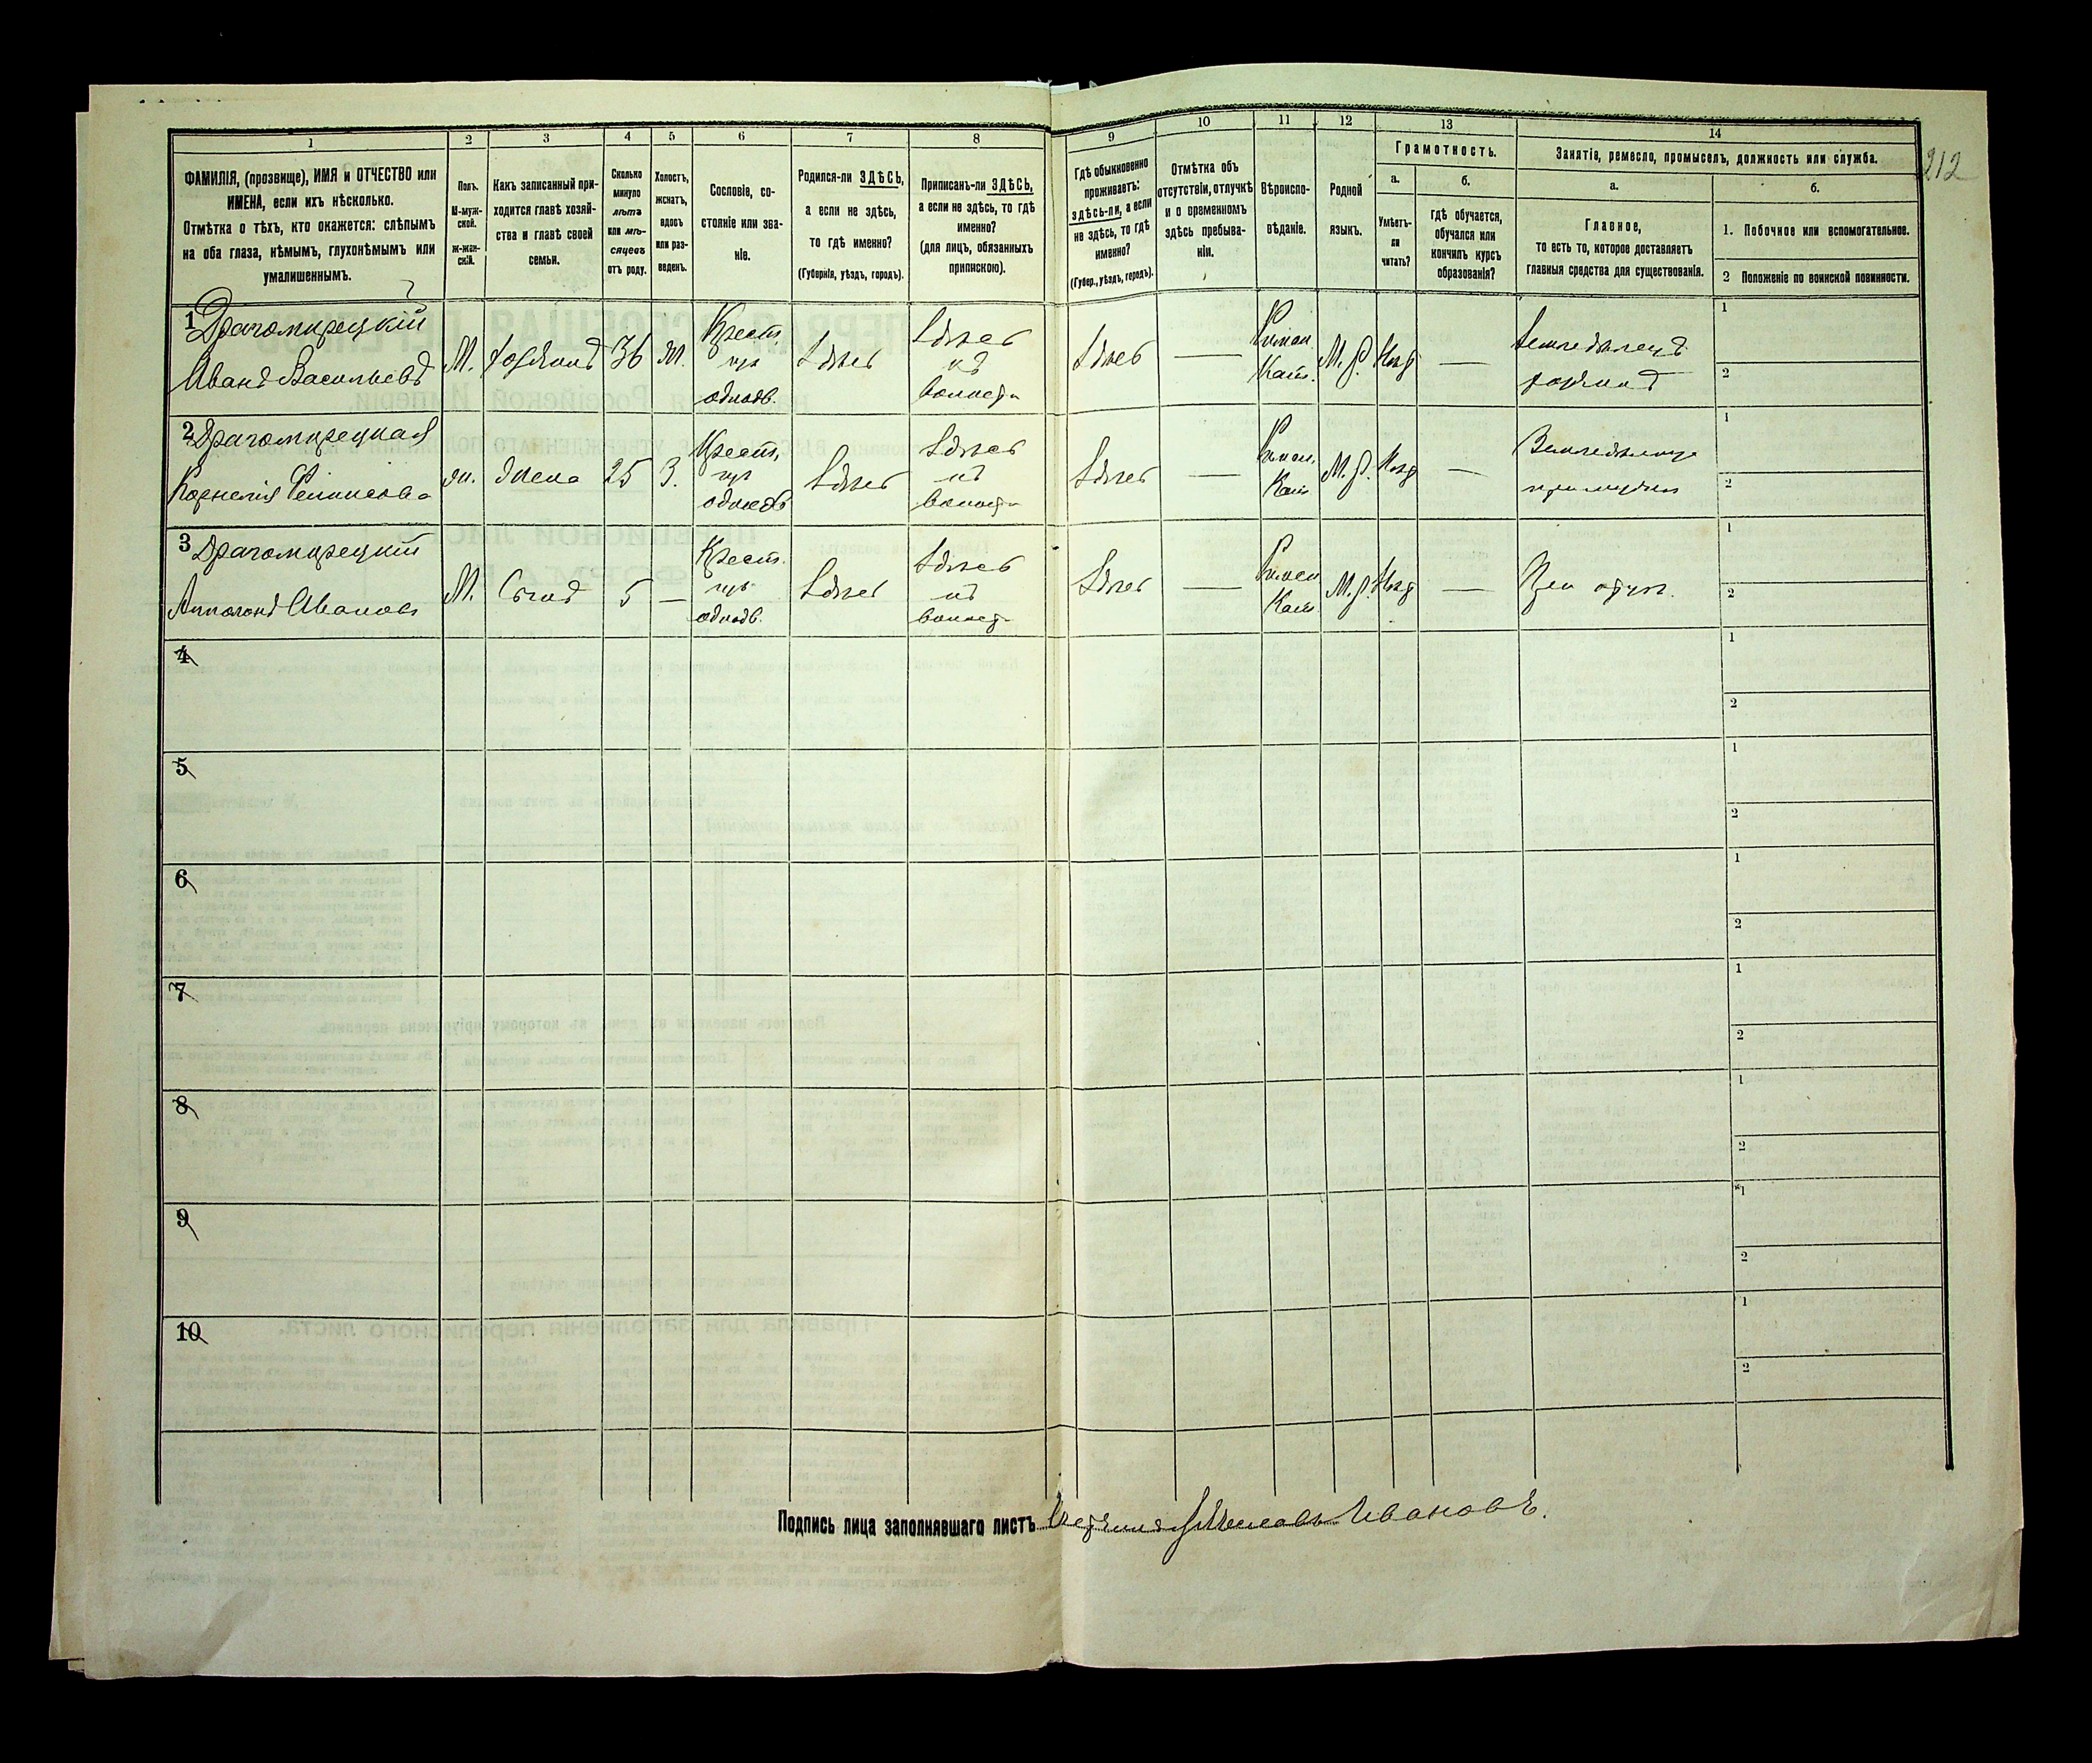 1 2 3 4 5 6 7 8 9 10 11 12 13 14
212
ФАМИЛІЯ, (прозвище), ИМЯ и ОТЧЕСТВО или
ИМЕНА, если ихъ нѣсколько.
Отмѣтка о тѣхъ, кто окажется: слѣпымъ
на оба глаза, нѣмымъ, глухонѣмымъ или
умалишеннымъ.
Полъ.
М-муж-
ской.
ж-жен-
скій.
Какъ записанный при-
ходится главѣ хозяй-
ства и главѣ своей
семьи.
Сколько
минуло
лѣтъ
или мѣ-
сяцевъ
отъ роду.
Холостъ,
женатъ,
вдовъ
или раз-
веденъ.
Сословіе, со-
стояніе или зва-
ніе.
Родился-ли ЗДѢСЬ,
а если не здѣсь,
то гдѣ именно?
(Губернія, уѣздъ, городъ).
Приписанъ-ли ЗДѢСЬ,
а если не здѣсь, то гдѣ
именно?
(для лицъ, обязанныхъ
припискою).
Гдѣ обыкновенно
проживаетъ:
здѣсь-ли, а если
не здѣсь, то гдѣ
именно?
(Губер., уѣздъ, городъ).
Отмѣтка объ
отсутствіи, отлучкѣ
и о временномъ
здѣсь пребыва-
ніи.
Вѣроиспо-
вѣданіе.
Родной
языкъ.
Грамотность.
а.
Умѣетъ-
ли
читать?
б.
Гдѣ обучается,
обучался или
кончилъ курсъ
образованія?
Занятія, ремесло, промыселъ, должность или служба.
а.
Главное,
то есть то, которое доставляетъ
главныя средства для существованія.
б.
1. Побочное или вспомогательное.
2 Положеніе по воинской повинности.
1 Драгомирецкій
Иванъ Васильевъ
М.
хозяинъ
36
ж.
Крест.
изъ
однодв.
Здѣсь
Здѣсь
въ
волости
Здѣсь
—
Римск.
Кат.
М. р.
Нѣтъ
—
Земледѣлецъ
хозяинъ
1
2
2 Драгомирецкая
Корнелія
ж.
жена
25
З.
Крест.
изъ
однодв
Здѣсь
Здѣсь
въ
волости
Здѣсь
—
Римск.
Кат
М. р.
Нѣтъ
—
Земледѣліе
при мужѣ
1
2
3 Драгомирецкій
Иванов
М.
Сынъ
5
—
Крест.
изъ
однодв.
Здѣсь
Здѣсь
въ
волости
Здѣсь
—
Римск
Кат
М. р.
Нѣтъ
—
При отцѣ.
1
2
4
1
2
5
1
2
6
1
2
7
1
2
8
1
2
9
1
2
10
1
2
Подпись лица заполнявшаго листъ Ивановъ.